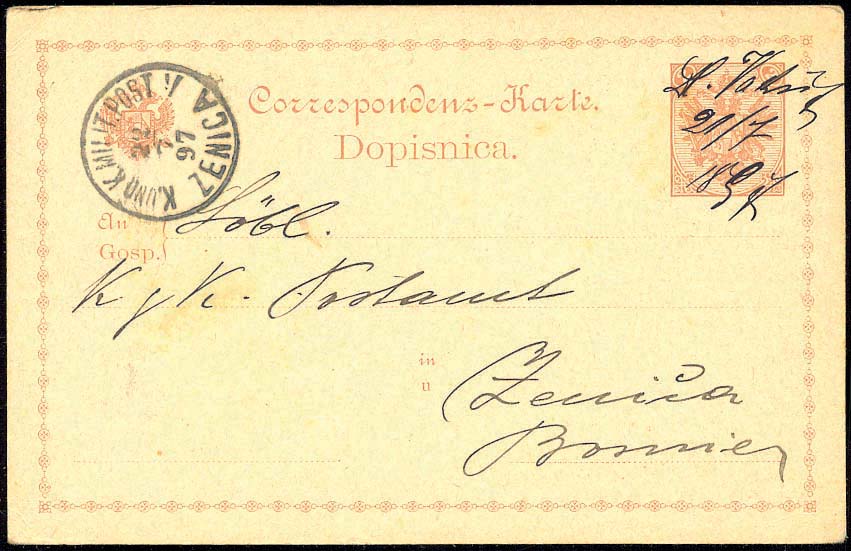 K. UND K. MILIT. POST. I.
ZENICA
97
Correspondenz-Karte.
Dopisnica.
21/7
1897
An
Gosp.
Löbl.
K. K. Postamt
in
u
Zeniča
Bosnien